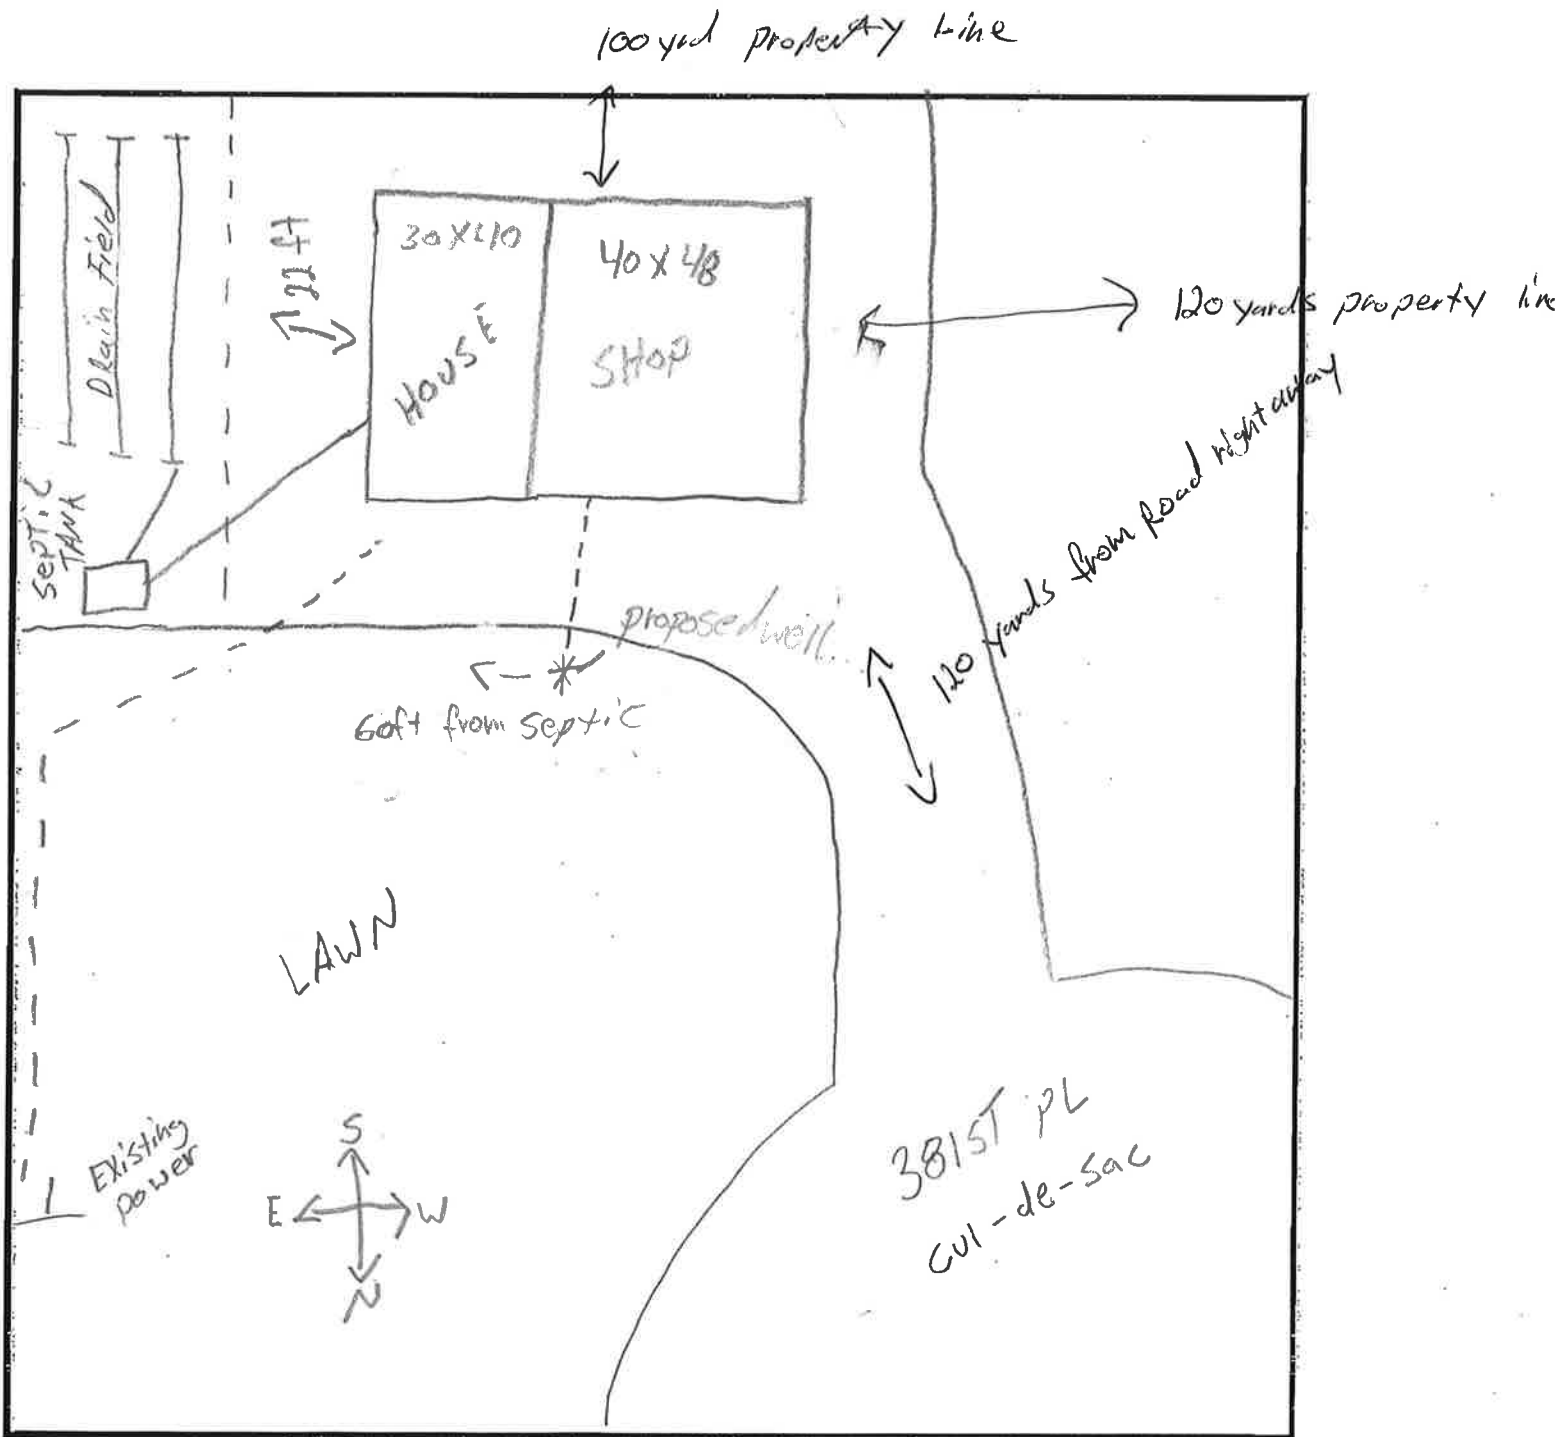 100 yrd property Line
30X40
40 X 48
22 ft
Drain Field
HOUSE
SHOP
120 yards property line
120 yards from Road right away
SEPTIC
TANK
proposed well
60ft from Septic
LAWN
Existing
power
S
E
W
N
381ST PL
CUl-de-Sac